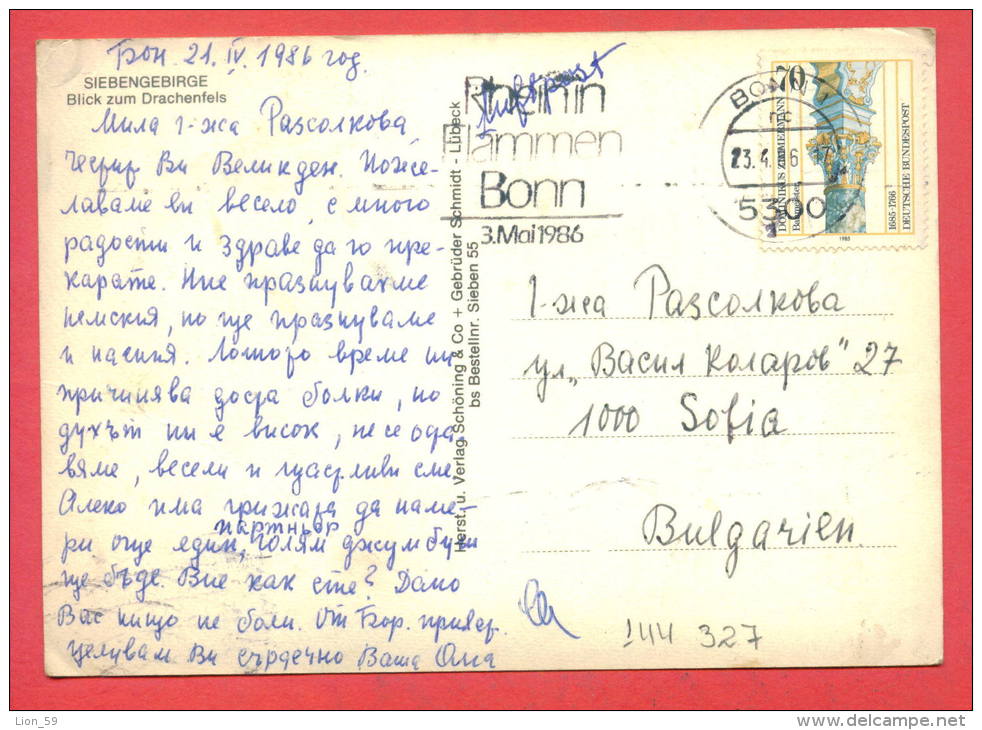 Бон 21. IV. 1986 год.
SIEBENGEBIRGE
Blick zum Drachenfels
Мила г-жа Разсолкова,
Честит Ви Великден. Поже-
лаваме ви весело, с много
радости и здраве да го пре-
карате. Ние празнувахме
немския, но ще празнуваме
и нашия. Лошото време ни
причинява доста болки, но
духът ни е висок, не се отча-
вяме, весели и щастливи сме.
Алеко има грижата да наме-
партньор
ри още един, голям джумбуш
ще бъде. Вие как сте? Дано
Вас нищо не боли. От Бор. привет.
целувам Ви сърдечно Ваша Оля
Herst. u. Verlag Schöning & Co + Gebrüder Schmidt - Lübeck
bs Bestellnr. Sieben 55
Luftpost
Rhein in
Flammen
Bonn
3. Mai 1986
BONN
23.4.86
5300
70
DOMINIKUS ZIMMERMANN
Baumeister
1685-1766
DEUTSCHE BUNDESPOST
1985
Г-жа Разсолкова
ул „Васил Коларов" 27
1000 Sofia
Bulgarien
144 327
Lion_59
www.delcampe.net